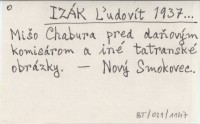 IZÁK Ľudovít 1937...
Mišo Chabura pred daňovým
komisárom a iné tatranské
obrázky. — Nový Smokovec.
BT/021/1147